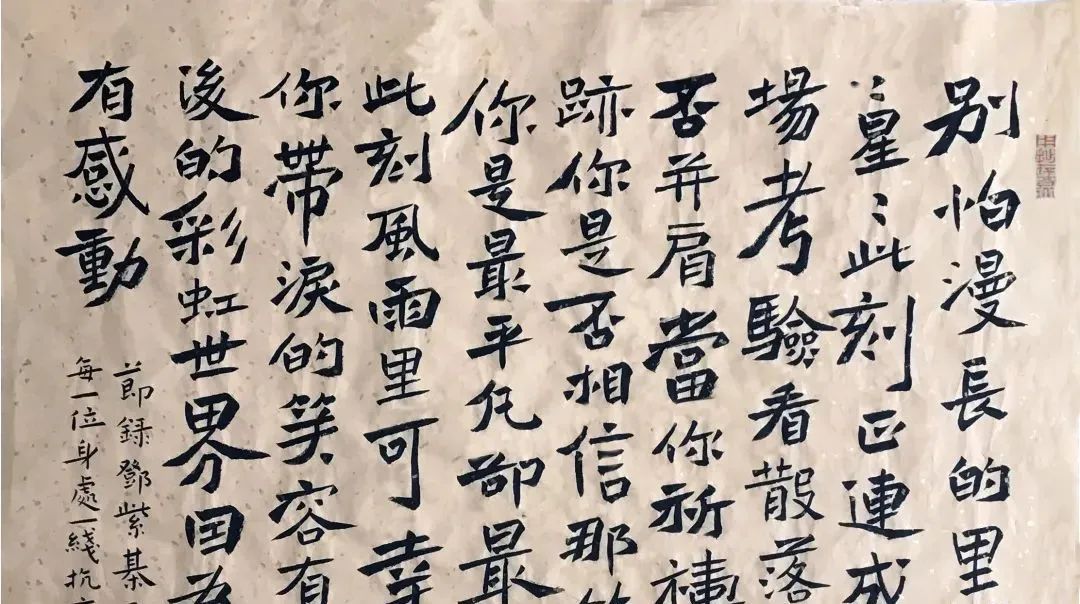 别怕漫長的里
〻星〻此刻正連成
場考驗看散落
否并肩當你祈
跡你是否相信那
你是最平凡却最
此刻風雨里可幸
你帶淚的笑容有
後的彩虹世界因
有感動
節録鄧紫棊
每一位身處一綫抗